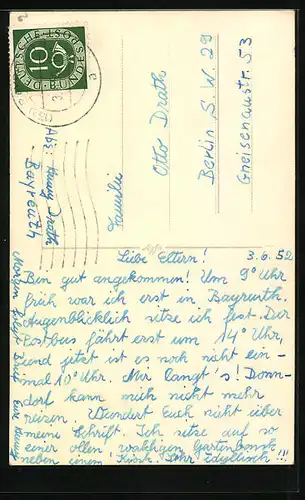 DEUTSCHE BUNDESPOST
10
Abs: Drath
Bayreuth
Familie
Otto Drath
Berlin S W 29
Gneisenaustr. 53
Liebe Eltern! 3.6.52
Bin gut angekommen! Um 9° Uhr
früh war ich erst in Bayreuth.
Augenblicklich sitze ich fest. Der
Postbus fährt erst um 14° Uhr,
und jetzt ist es noch nicht ein-
mal 10° Uhr. Mir langt's! Donn-
dorf kann mich nicht mehr
reizen. Wundert Euch nicht über
meine Schrift. Ich sitze auf so
einer ollen wakligen Gartenbank
neben einem Kiosk. Sehr Idyllisch!!!
Morgen folgt Brief Eure